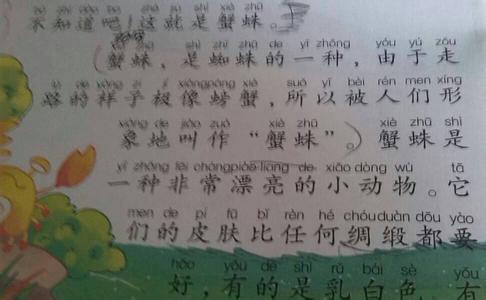 bù zhī dào ba zhè jiù shì xiè zhū
不知道吧！这就是蟹蛛。
xiè zhū shì zhī zhū de yī zhǒng yóu yú zǒu
（蟹蛛，是蜘蛛的一种，由于走
lù de yàng zi jí xiàng páng xiè suǒ yǐ bèi rén men xíng
路的样子极像螃蟹，所以被人们形
xiàng de jiào zuò xiè zhū xiè zhū shì
象地叫作“蟹蛛”。）蟹蛛是
yī zhǒng fēi cháng piào liang de xiǎo dòng wù tā
一种非常漂亮的小动物。它
men de pí fū bǐ rèn hé chóu duàn dōu yào
们的皮肤比任何绸缎都要
hǎo yǒu de shì rǔ bái sè yǒu
好，有的是乳白色，有